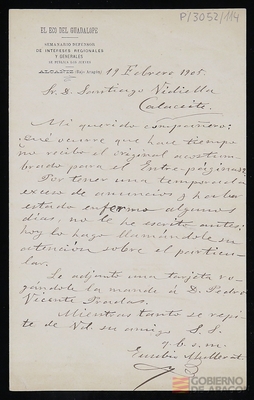 P/3052/114
EL ECO DEL GUADALOPE
SEMANARIO DEFENSOR
DE INTERESES REGIONALES
Y GENERALES
SE PUBLICA LOS JUEVES
ALCAÑIZ (Bajo Aragón)
19 Febrero 1905
Sr. D. Santiago Vidiella
Calaceite.
Mi querido compañero:
Qué ocurre que hace tiempo
no recibo el original acostum-
brado para el Entre-páginas?
Por tener una temporada
exceso de anuncios y haber
estado enfermo algunos
días, no le he escrito antes:
hoy lo hago llamándole su
atención sobre el particu-
lar.
Le adjunto una tarjeta ro-
gándole la mande á D. Pedro
Vicente
Mientras tanto se repi-
te de Vd. su amigo S. S.
q. b. s. m.
Eusebio
GOBIERNO
DE ARAGON